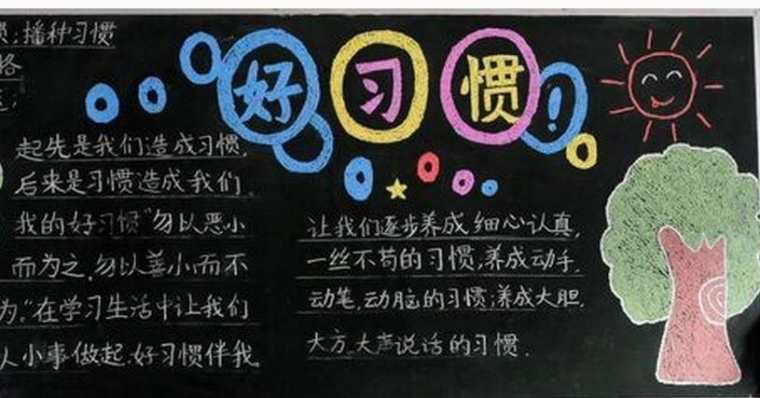 播种习惯
好习惯!
起先是我们造成习惯,
后来是习惯造成我们.
我的好习惯"勿以恶小
而为之,勿以善小而不
为."在学习生活中让我们
小事做起.好习惯伴我
让我们逐步养成细心认真,
一丝不苟的习惯,养成动手,
动笔,动脑的习惯;养成大胆.
大方.大声说话的习惯.